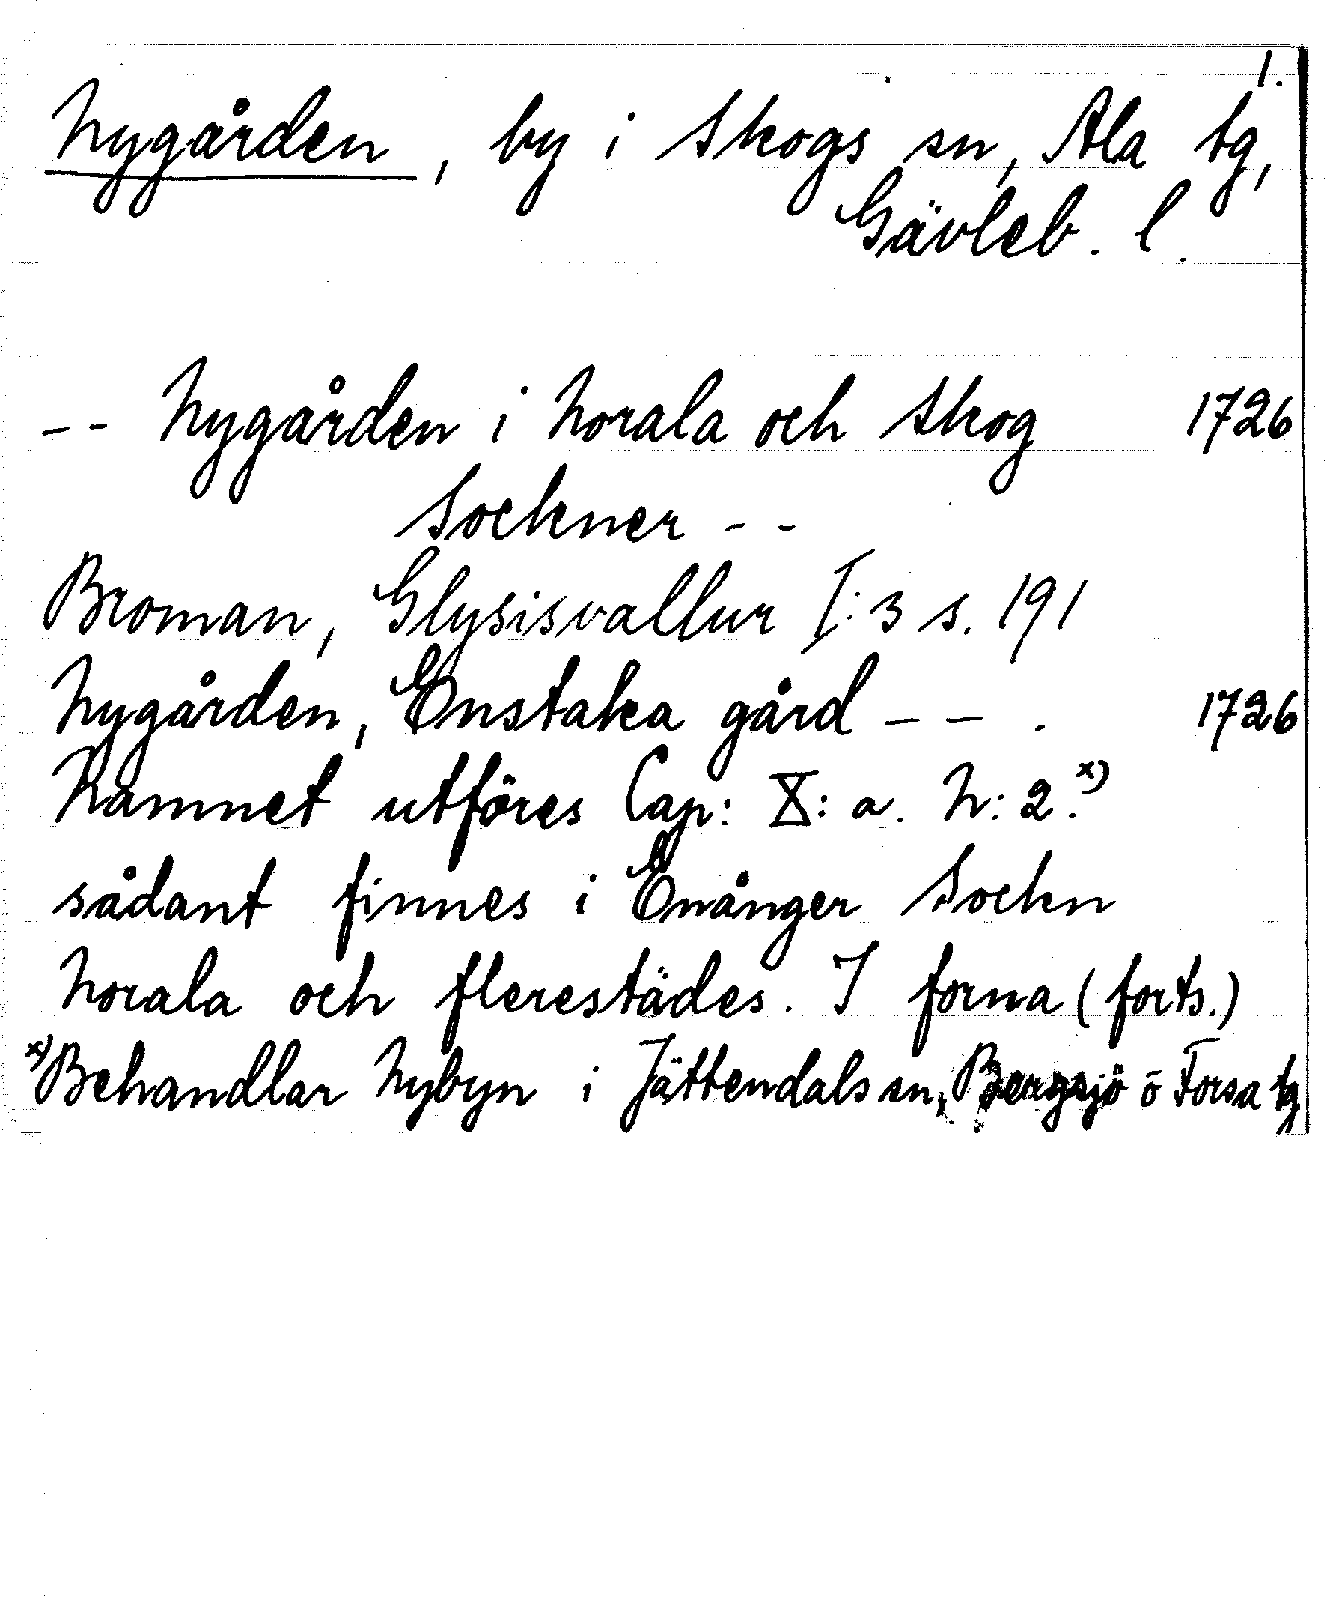 1.
Nygården, by i Skogs sn, Ala tg,
Gävleb. l.
-- Nygården i Norala och Skog 1726
Sockner --
Broman, Glysisvallur I:3 s. 191
Nygården, Enstaka gård -- . 1726
Namnet utföres Cap: X: a. N: 2.x)
sådant finnes i Enånger Sockn
Norala och flerestädes. I forna (forts.)
x) Behandlar Nybyn i Jättendals sn, Bergsjö o Forsa tg